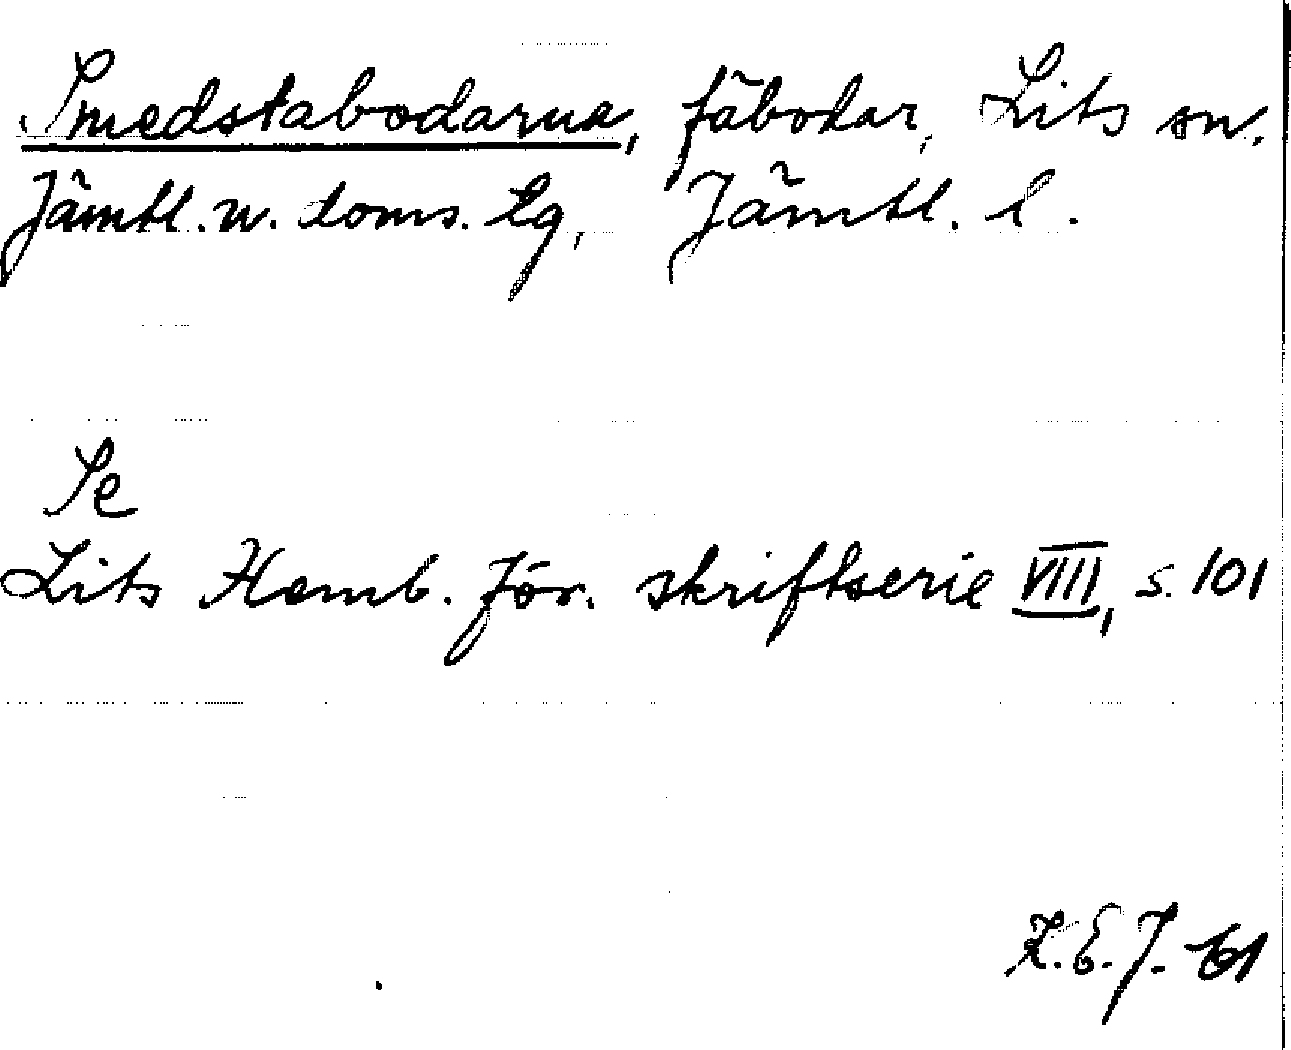 Smedstabodarna, fäbodar, Lits sn.
Jämtl. n. doms. lg, Jämtl. l.
Se
Lits Hemb. för. skriftserie VIII, s. 101
K. E. J. 61